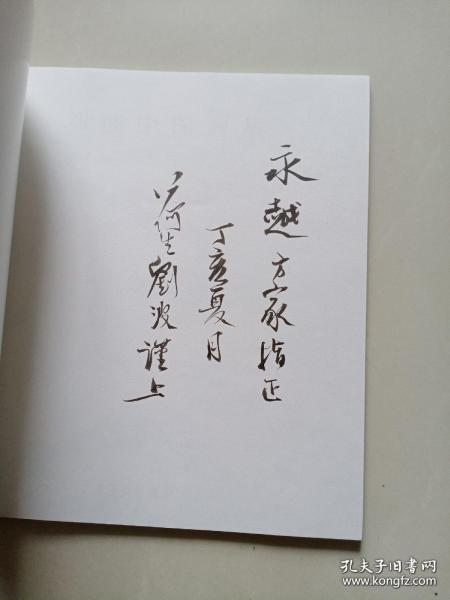 永越方家指正
丁亥夏月
劉波謹上
孔夫子旧书网
www.kongfz.com